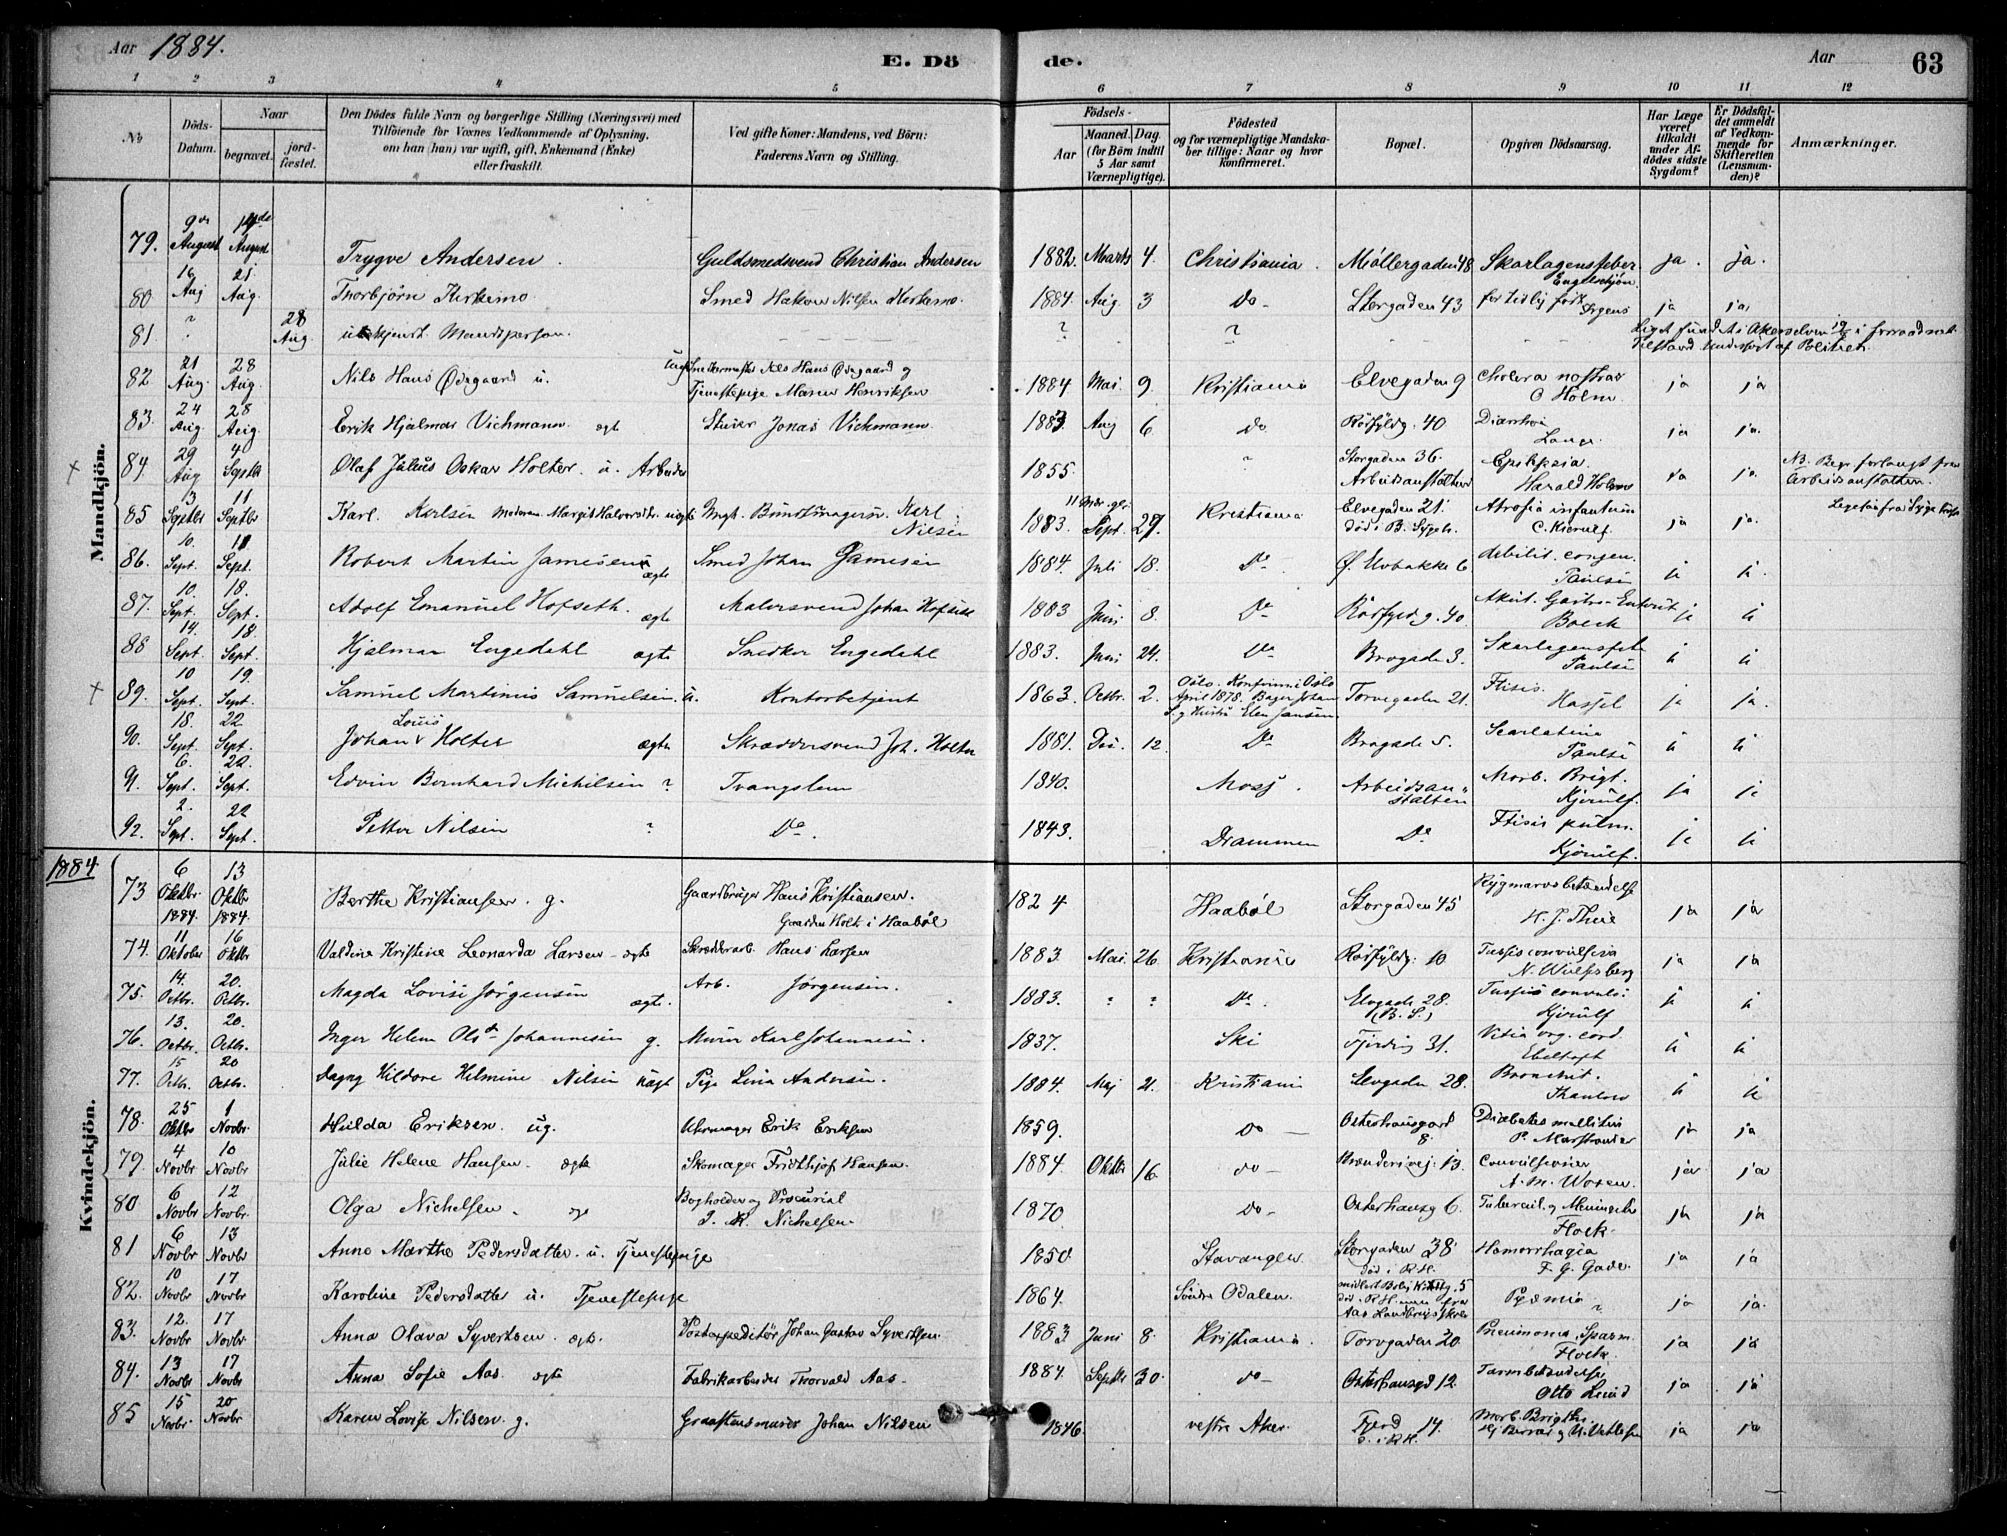 Aar 1884.
E. Dö
de.
Aar
63
1 2 3 4 5 6 7 8 9 10 11 12
№
Döds-
Datum.
Naar
begravet.
jord-
fæstet.
Den Dödes fulde Navn og borgerlige Stilling (Næringsvei) med
Tilföiende for Voxnes Vedkommende af Oplysning,
om han (hun) var ugift, gift, Enkemand (Enke)
eller fraskilt.
Ved gifte Koner: Mandens, ved Börn:
Faderens Navn og Stilling.
Födsels-
Aar
Maaned. Dag.
(for Börn indtil
5 Aar samt
Værnepligtige).
Födested
og for værnepligtige Mandska-
ber tillige: Naar og hvor
konfirmeret.
Bopæl.
Opgiven Dödsaarsag.
Har Læge
været
tilkaldt
under Af-
dödes sidste
Sygdom?
Er Dödsfal-
det anmeldt
af Vedkom-
mende for
Skifteretten
(Lensman-
den)?
Anmærkninger.
Mandkjön.
79. 9de August 14de August Trygve Andersen. Guldsmedsvend Christian Andersen 1882. Marts 4. Christiania. Møllergaden 48 Skarlagensfeber ja. ja.
80 16 Aug 21 Aug. Thorbjørn Kirkemo. Smed Hakon Nilsen Kirkemo. 1884. Aug. 3 Do- Storgaden 43 for tidlig født ja ja,
81. ? 28 Aug. ukjendt Mandsperson. ? ? Liget fundet i Akerselven
Tilstand Politiet.
82. 21 Aug. 28 Aug. Nils Hans Ødegaard u. Snedkermester Nils Hans Ødegaard og
Tjenestepige Maren Henriksen 1884 Mai. 9. Kristiania Elvegaden 9 Cholera nostras
C Holm. ja ja
83. 24 Aug. 28 Aug. Erik Hjalmar Vichmann. ægt Jonas Vichmann. 1883. Aug 6. do Rørfyldg. 40 Diarrhoe
Lange. ja ja.
84 29 Aug 4 Septb Olaf Julius Oskar Holter. u. Arbeider 1855. ? Storgaden 36.
Arbeidsanstalten Epilepsia.
Harald Holm ja. NB. Begr. forlangt fra
Arbeidsanstalten.
85 3 Septbr 11 Septbr Karl. Karlsen Moderen Margit uægte Ungk. Karl.
Nilsen 1883. Sept. 29. Kristiania Elvegaden 21.
død i B. Sygeh. Atrofia infantum
C. Kierulf ja ja.
86. 10. Sept. 11 Sept. Robert Martin Jamesen ægte Smed Johan Jamesen 1884. Juli 18. Do Ø. Elvbakke 6 debilit. congen.
Paulsen
87. 10. Sept. 18. Sept. Adolf Emanuel Hofseth. ægte Malersvend Johan Hofseth 1883 Juni 8. Do Rørfyldg. 40. Akut. Gastro-Enterit
Boeck
88 14. Sept. 18. Sept. Hjalmar Engedahl ægte Snedker Engedahl 1883. Juni 24. Do Brogade 3. Skarlagensfeb
Paulsen
89. 10 Sept. 19. Sept. Samuel Martinius Samuelsen u. Kontorbetjent 1863. Octbr. 2. Oslo. Konfirm. i Oslo
April 1878. Torvegaden 21. Ftisis.
Hassel ja ja.
90. 18. Sept. 22 Sept. Johan Louis Holter ægte Skræddersvend Joh. Holter 1881. 12. Do Brogade 5. Scarlatina
Paulsen
91. 6. Sept. 22. Sept. Edvin Bernhard Michelsen ? Tvangslem 1840. Moss. Arbeidsan-
stalten Morb. Brigt.
Kjerulf. ja
92. 2. Sept. 22 Sept. Petter Nilsen ? Do. 1843. Drammen Do Ftisis pulm.
Kjerulf.
1884
Kvindekjön.
73 6 Oktbr. 1884. 13 Oktbr 1884. Berthe Kristiansen. g. Gaardbruger Hans Kristiansen.
Gaarden Holt i Haabøl 1824 Haabøl Storgaden 45 Rygmarvsbetændelse
ja ja
74. 11 Oktober 16 Oktbr Valdine Kristine Leonarda Larsen ægte Skrædderarb. Hans Larsen 1883. Mai. 26. Kristiania Rørfyldg. 10 Tussis convulsiva
N. Wulfsberg ja ja
75. 14. Octbr. 20. Octbr. Magda Lovise Jørgensen ægte. Arb. Jørgensen. 1883. " ? Do. Elvgade 28.
(B. S.) Tussis convuls:
Kjerulf
76. 13. Octbr. 20. Octbr. Inger Helene Olsd Johannesen g. Murer Karl Johannesen. 1837. Ski Fjerding 31. Vitia org. cord.
Ebeltoft
77. 15 Octbr. 20 Octbr. Dagny Hildore Helmine Nilsen uægt Pige Lina Andersen. 1884. Maj 21. Kristiania Elvgaden 28. Bronchit.
Thaulow
78. 25 Oktbr. 1 Novbr. Hulda Eriksen. ug. Uhrmager Erik Eriksen 1859. do Osterhausgad
8. Diabetes mellitus
P. Marstrander ja ja
79. 4 Novbr 10 Novbr Julie Helene Hansen. ægte Skomager Fridthjof Hansen. 1884. Oktbr 16 do- 13. Convulsioner
ja ja
80 6 Novbr 12 Novbr. Olga Nichelsen. Bogholder og
Nichelsen. 1870 do- Osterhausg 6. Tubercul. og Meningit
Flock. ja ja
81 6 Novbr 13 Novbr Anne Marthe Pedersdatter. u. Tjenestepige 1850 Stavanger Storgaden 38.
død i R.H. Hæmorrhagia
F. G. Gade. ja ja.
82. 10 Novbr 17 Novbr Karoline Pedersdatter u. Tjenestepige 1864. Søndre Odalen.
Aas Pyæmia
? ja ja.
83. 12. Novbr 17 Novbr Anna Olava Syvertsen. ægt. Postexpeditør Johan Gustav Syvertsen. 1883 Juni 8. Kristiania. Torvgaden 20 Pneumonia,
Flock. ja ja
84. 13 Novbr 17 Novbr Anna Sofie Aas. ægte Fabrikarbeider Thorvald Aas. 1884. Septbr 30. do- Osterhausgd 12. Tarmbetændelse
Otto Lund ja ja
85 15 Novbr 20 Novbr Karen Lovise Nilsen. g. Johan Nilsen 1846. vestre Aker. Fjerd 14.
d. i R.H. Morb. Brigthi.
ja ja